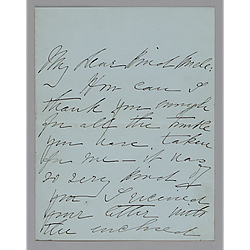 My dear
How can I
thank you enough
for all the trouble
you have taken
for me - it was
so very kind of
you. I received
your letter with
the enclosed